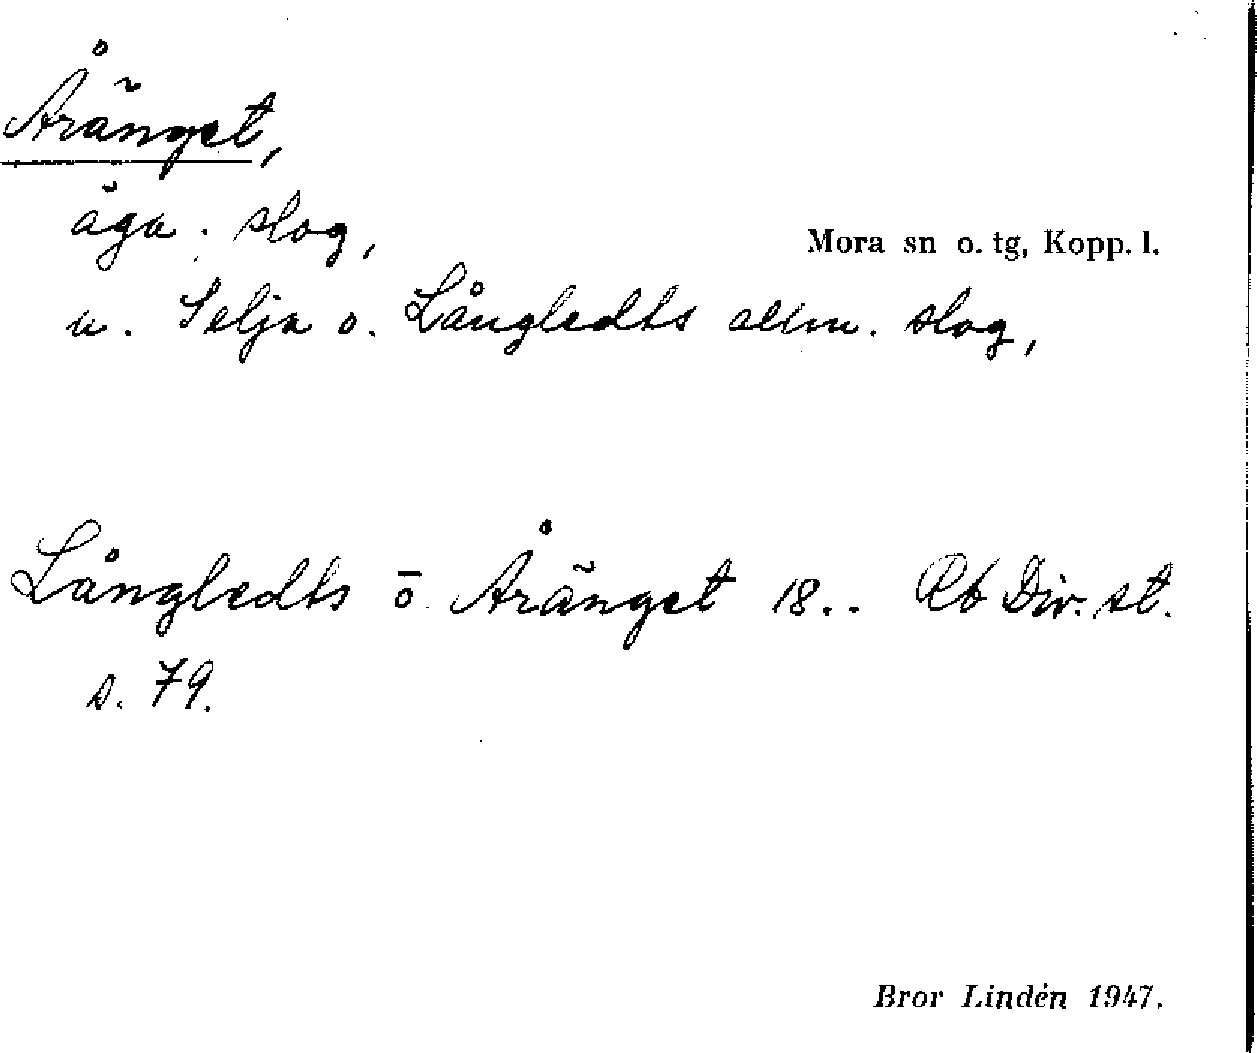 Åränget,
äga. slog,
Mora sn o. tg, Kopp. l.
u. Selja o. Långledts allm. slog,
Långledts ō Åränget 18.. Rb Div. st.
s. 79.
Bror Lindén 1947.